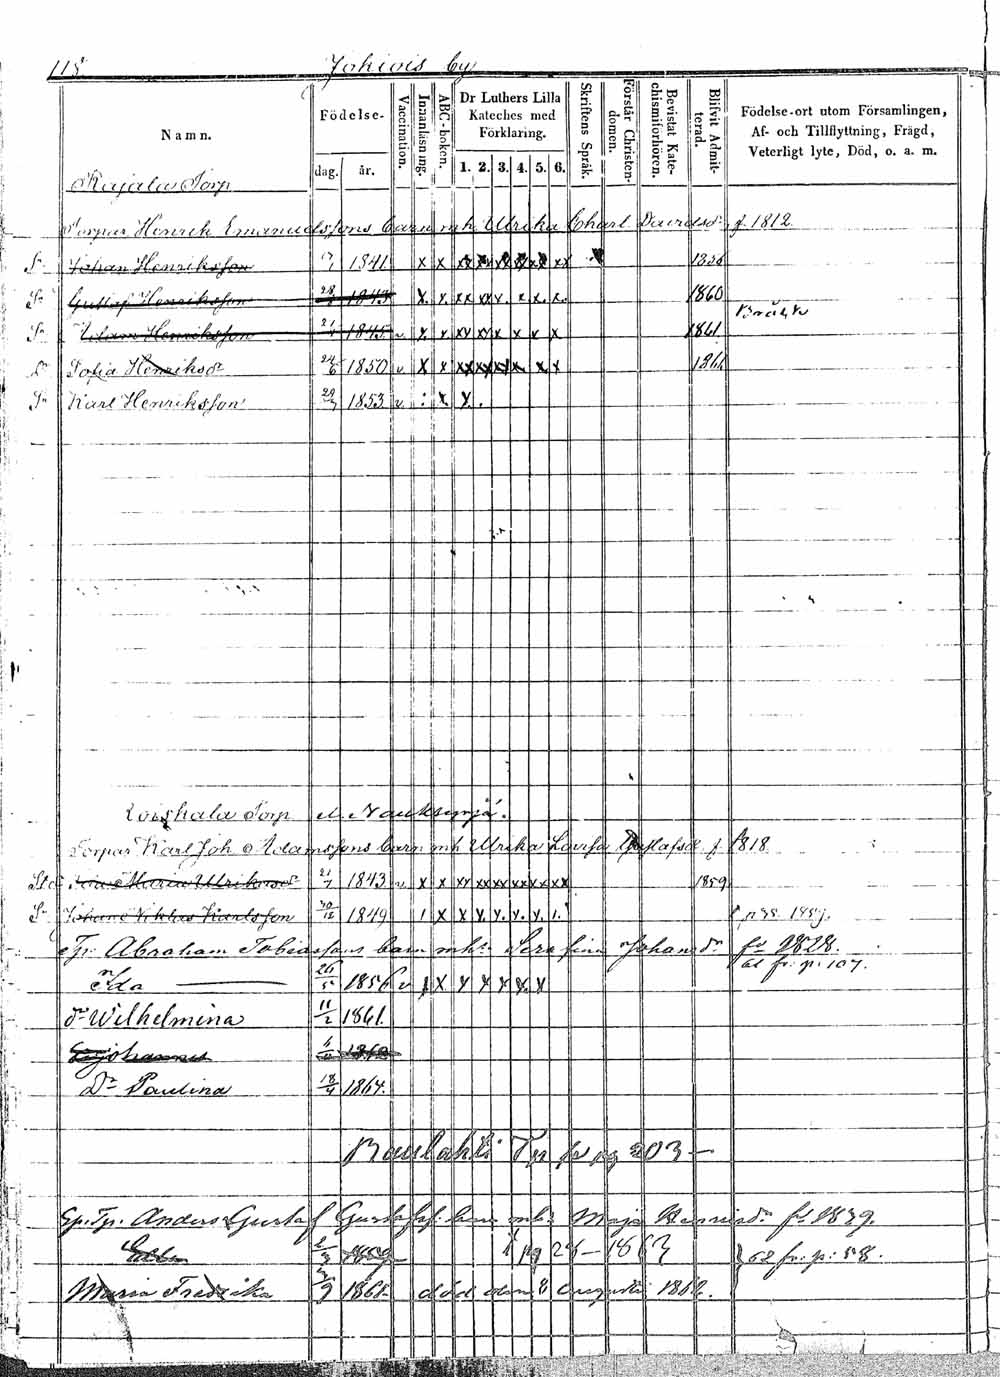 118.
Johiois by
Namn.
Födelse-
dag.
år.
Vaccination.
Innanläsning.
ABC-boken.
Dr Luthers Lilla Kateches med Förklaring.
1. 2. 3. 4. 5. 6.
Skriftens Språk.
Förstår Christen-domen.
Bevistat Kate-chismiförhören.
Blifvit Admit-terad.
Födelse-ort utom Församlingen,
Af- och Tillflyttning, Frägd,
Veterligt lyte, Död, o. a. m.
Rajala Torp
Torpar Henrik Emanuelssons barn mh Ulrika Charl. Davidsdr f. 1812.
Sn Johan Henriksson 1841 x x
Sn Gustaf Henriksson 1843 x x xx xx x. x x. x. 1860
Sn Adam Henriksson 1845 v x x xx xx x x x x 1861
Dr Sofia Henriksdr 24/6 1850 v x x xx xx xx x x x
Sn Karl Henriksson 1853 v
Torp el. Nauksynjä.
Torpar Karl Joh Adamssons barn mh Ulrika Lovisa Gustafsdr f. 1818
Maria Ulrika 21/7 1843 v x x xx xx xx xx xx xx 1859
Sn Johan Niklas Karlsson 30/12 1849
Tp. Abraham Tobiassons barn mh. Serafina Johansdr fd 1828.
61 fr. p. 107.
Ida 26/5 1856 v x x x x x x x
dr Wilhelmina 11/2 1861.
Johannes
Dr Paulina 18/4 1864.
Tp fr pg 203 —
Anders Gustaf Gustafss. barn mh: Maja Henriksdr fd 1839.
1859 pg 28 — 1863 } 62 fr. p: 58.
Maria Fredrika 1861. död den 8 Augusti 1862.